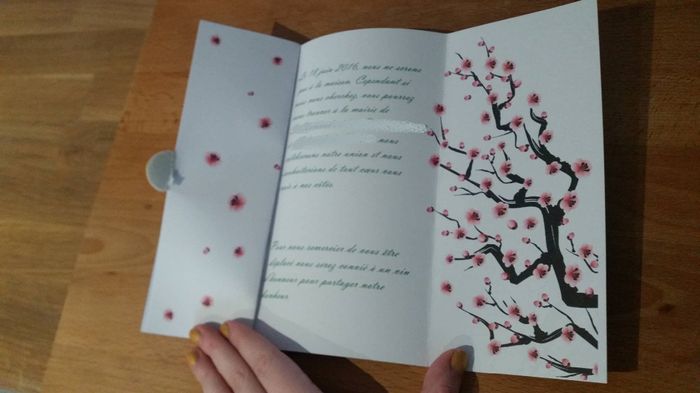 Le 18 juin 2016, nous ne serons
pas à la maison. Cependant si
vous nous cherchez, vous pourrez
nous trouver à la mairie de
nous
célèbrerons notre union et nous
souhaiterions de tout cœur vous
avoir à nos côtés.
Pour vous remercier de vous être
déplacé vous serez convié à un vin
d'honneur pour partager notre
bonheur